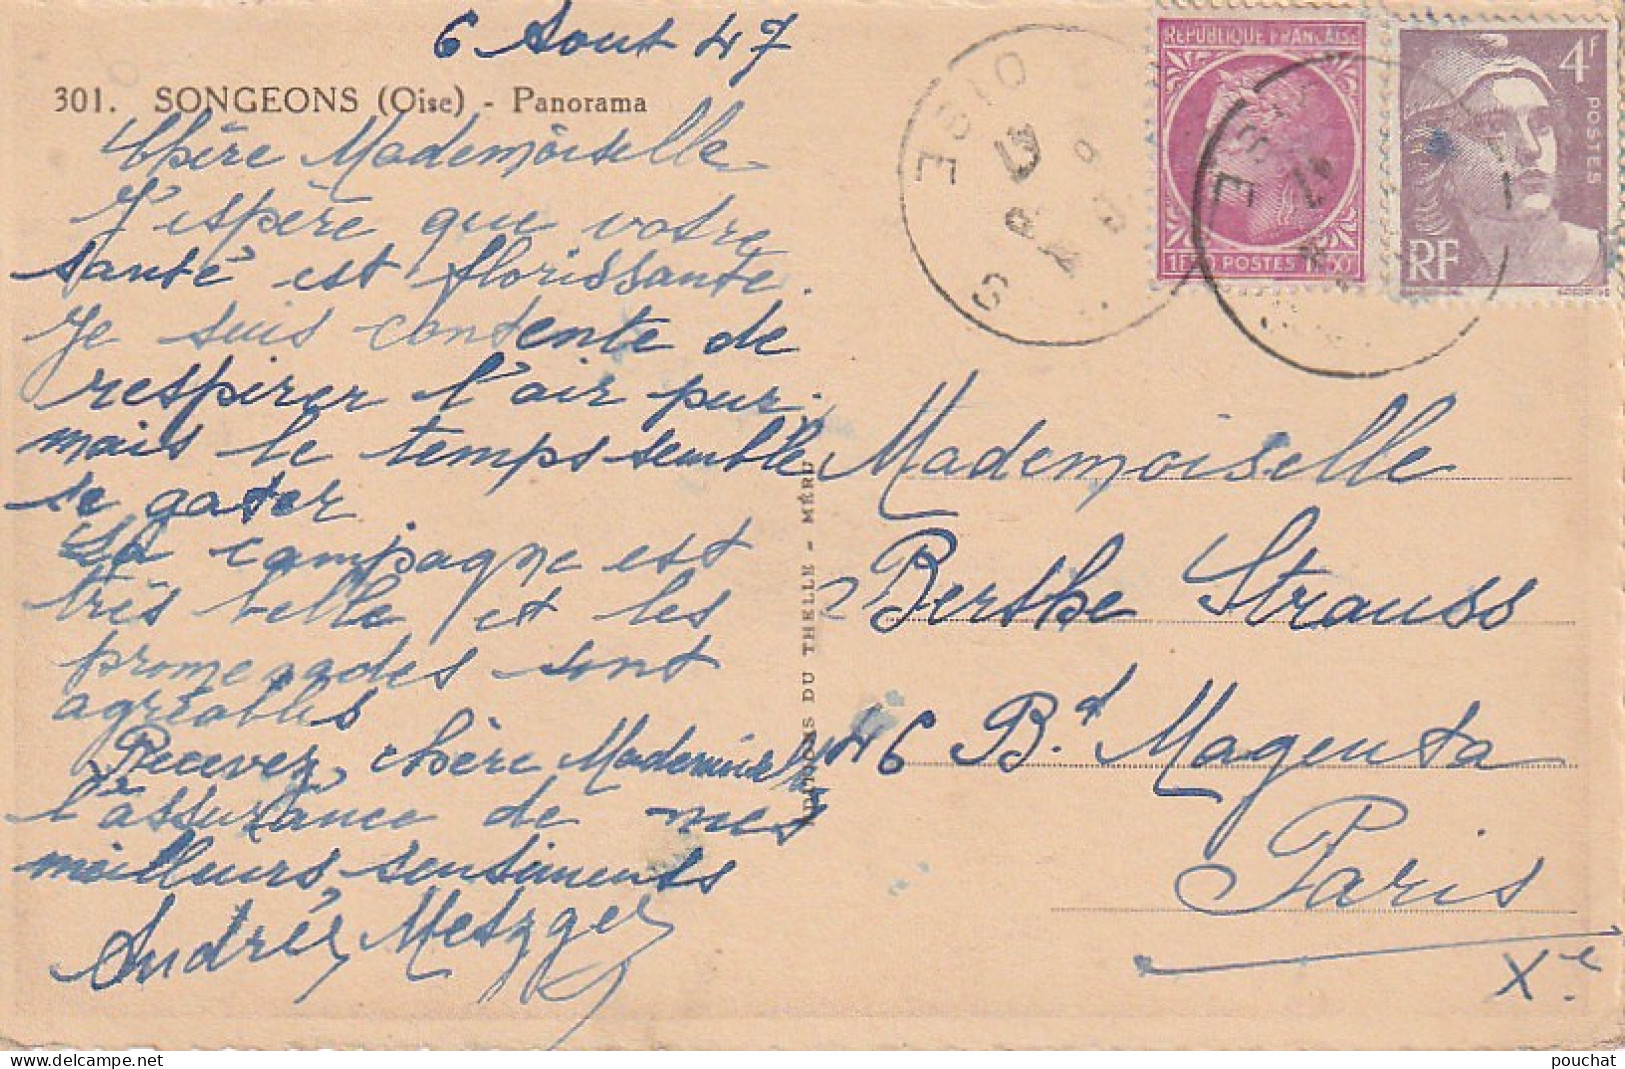 6 Aout 47
301. SONGEONS (Oise) - Panorama
Chère Mademoiselle
J'espère que votre
santé est florissante.
Je suis contente de
respirer l'air pur.
mais le temps semble
se gater
La campagne est
très belle et les
promenades sont
agréables
Recevez, chère Mademoiselle
l'assurance de mes
meilleurs sentiments
Andrée Metzger
EDITIONS DU THELLE - MÉRU
OISE
S
RÉPUBLIQUE FRANÇAISE
1F50 POSTES 1F50
4F
POSTES
RF
Mademoiselle
Berthe Strauss
46 Bd Magenta
Paris
Xe.
pouchat